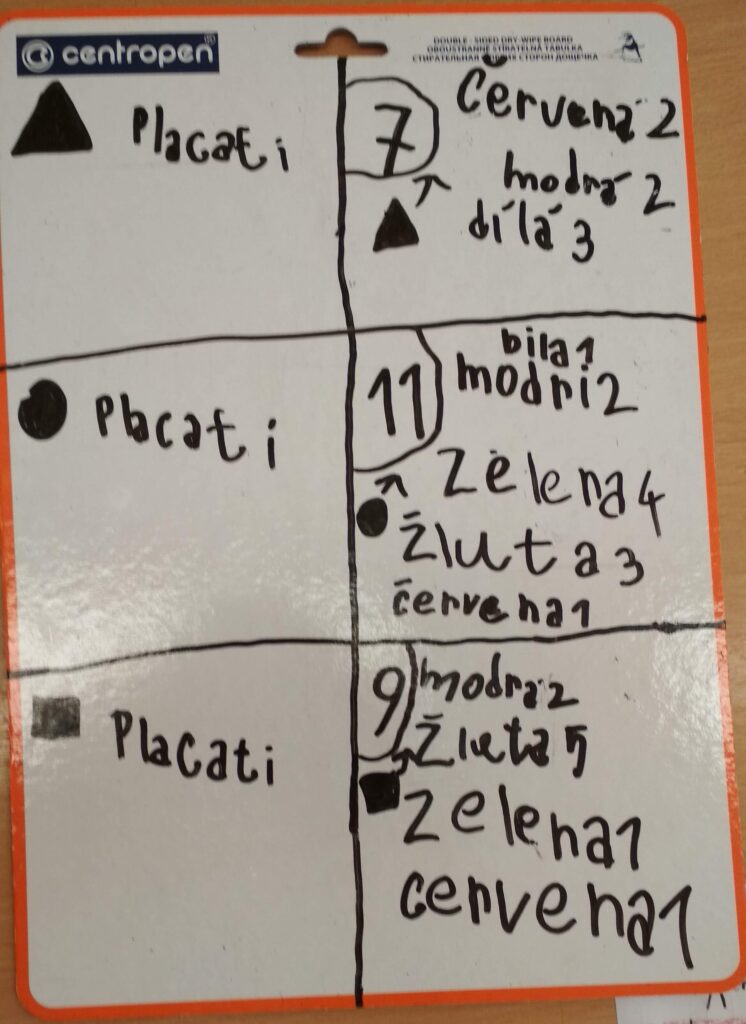 centropen®
DOUBLE - SIDED DRY-WIPE BOARD
OBOUSTRANNĚ STÍRATELNÁ TABULKA
СТИРАТЕЛЬНАЯ СТОРОН ДОЩЕЧКА
Placati
7
Červená 2
modrá 2
dílá 3
Placati
11
bila1
modri2
Zelena4
Žluta3
červena1
Placati
9
modra2
Žluta5
Zelena1
cervena1